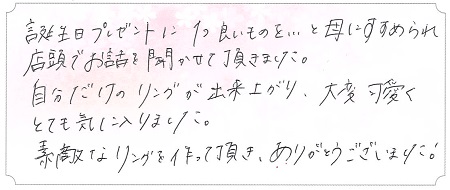 誕生日プレゼントに1つ良いものを…と母にすすめられ
店頭でお話を聞かせて頂きました。
自分だけのリングが出来上がり、大変可愛く
とても気に入りました。
素敵なリングを作って頂き、ありがとうございました!